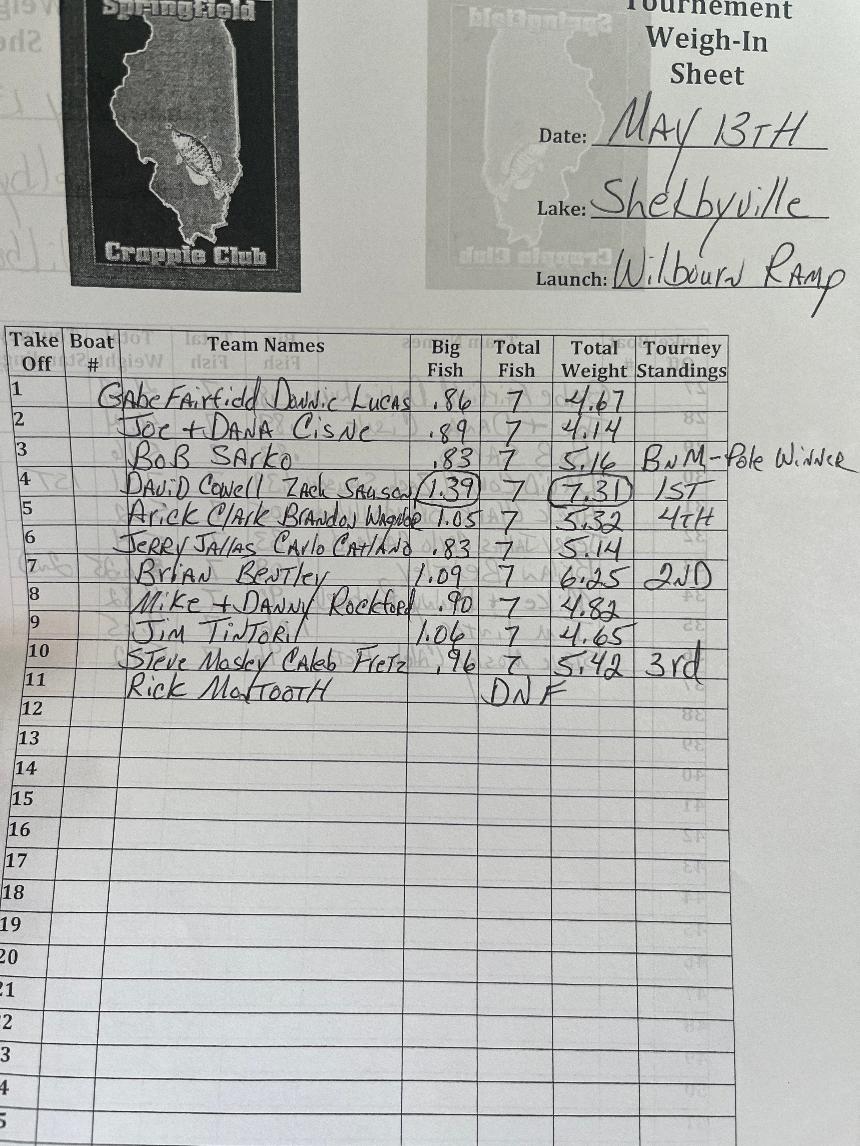 Springfield
Crappie Club
Tournement
Weigh-In
Sheet
Date: MAY 13TH
Lake: Shelbyville
Launch: Wilbourn RAMP
Take Off Boat # Team Names Big Fish Total Fish Total Weight Tourney Standings
1 Gabe Fairfield Donnie Lucas .86 7 4.67
2 Joe + DANA Cisne .89 7 4.14
3 BoB SArko .83 7 5.16 BnM-Pole Winner
4 DAviD Cowell Zack 1.39 7 7.31 1ST
5 Arick Clark Brandon 1.05 7 5.32 4TH
6 Jerry Jallas Carlo .83 7 5.14
7 BriAN BeNTley 1.09 7 6.25 2ND
8 Mike + DANNY Rockford .90 7 4.82
9 Jim TiNTori 1.06 7 4.65
10 Steve Mosley CAleb Fretz .96 7 5.42 3rd
11 Rick DNF
12
13
14
15
16
17
18
19
20
21
2
3
4
5